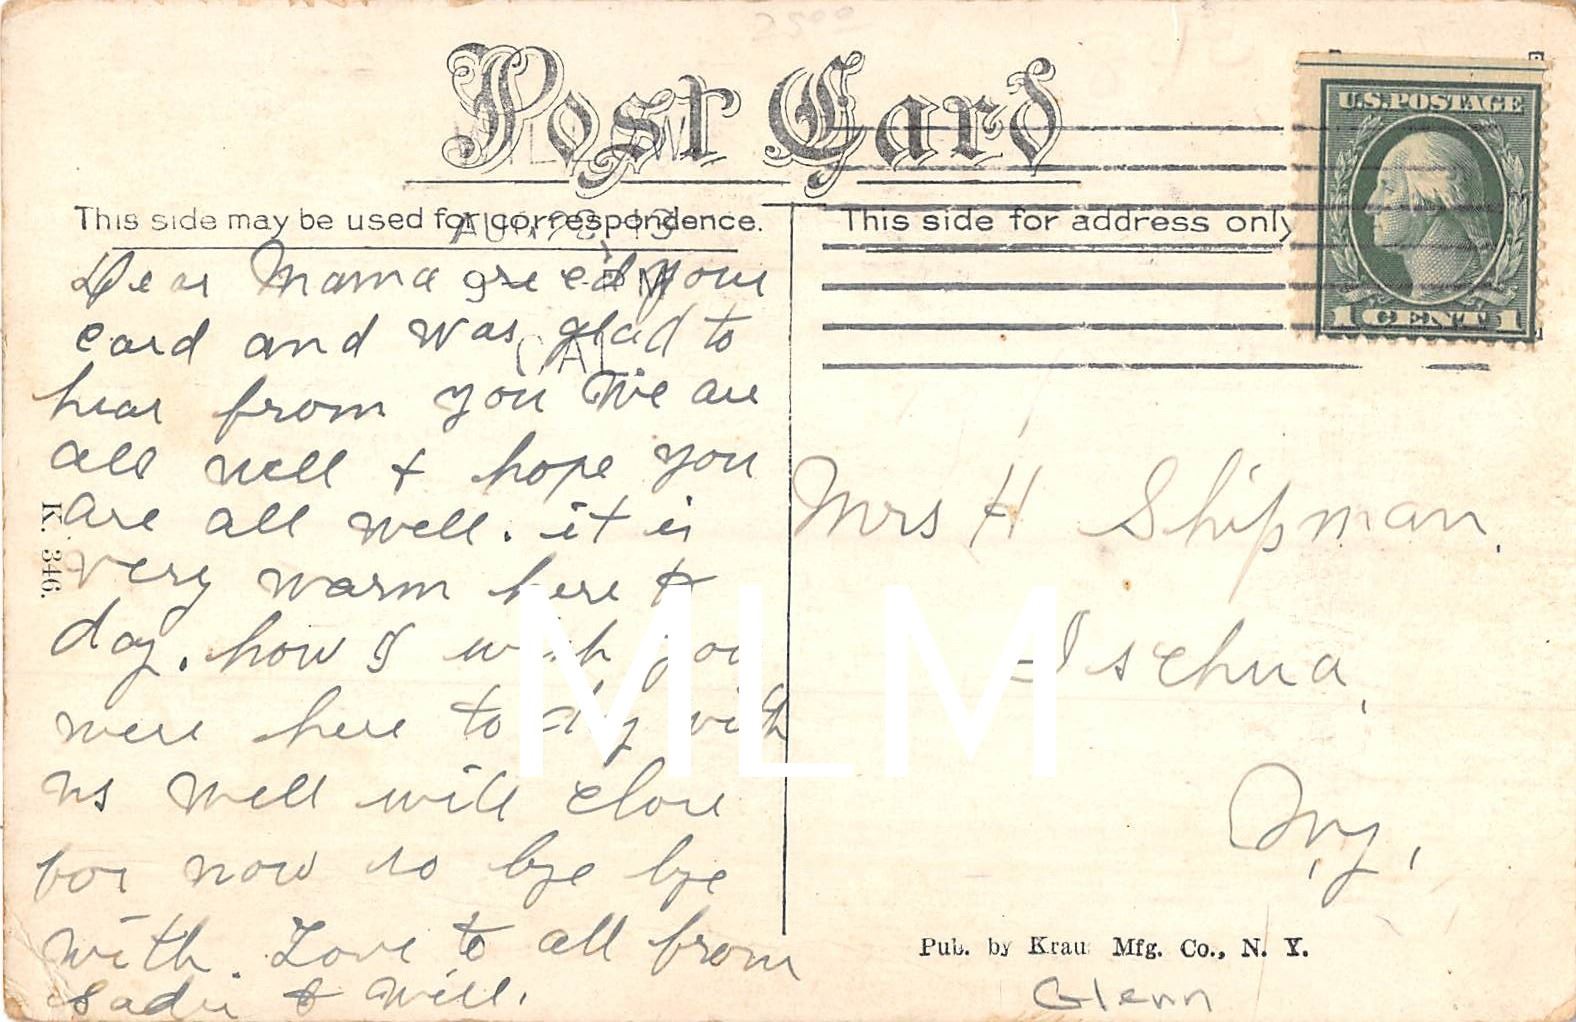 Post Card
This side may be used for correspondence.
This side for address only
U.S. POSTAGE
1 CENT 1
CAL
Dear Mama rec'd your
card and was glad to
hear from you We are
all well & hope you
are all well. it is
very warm here to
day. how I wish you
were here to day with
us well will close
for now so bye bye
with. Love to all from
Sadie & Will.
K. 346.
Mrs H Shipman.
Ischua,
N,y,
Pub. by Kraus Mfg. Co., N. Y.
Glenn
MLM